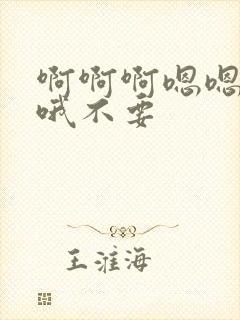 啊啊啊嗯嗯
哦不要
王淮海